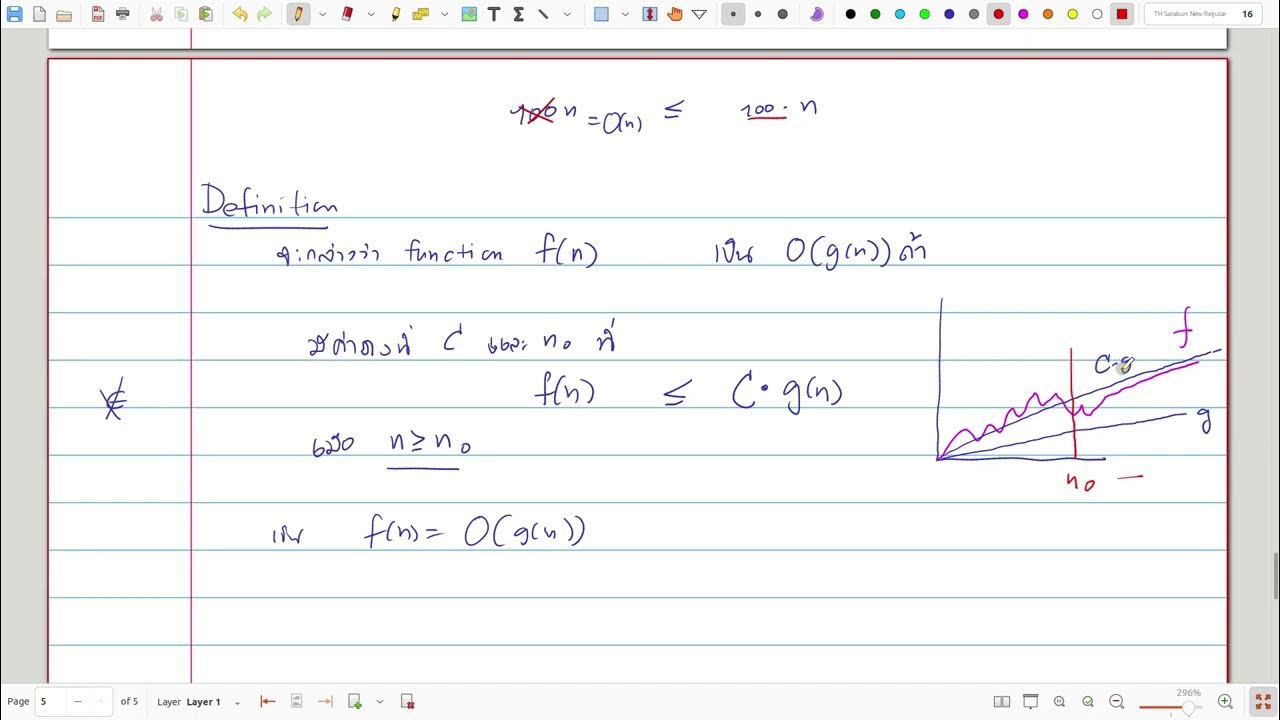 TH Sarabun New Regular 16
100 n = O(n) ≤ 100 · n
Definition
จะกล่าวว่า function f(n) เป็น O(g(n)) ถ้า
มีค่าคงที่ C และ n₀ ที่
f(n) ≤ C · g(n)
เมื่อ n ≥ n₀
เช่น f(n) = O(g(n))
f
C·g
g
n₀
Page 5 of 5 Layer Layer 1 296%